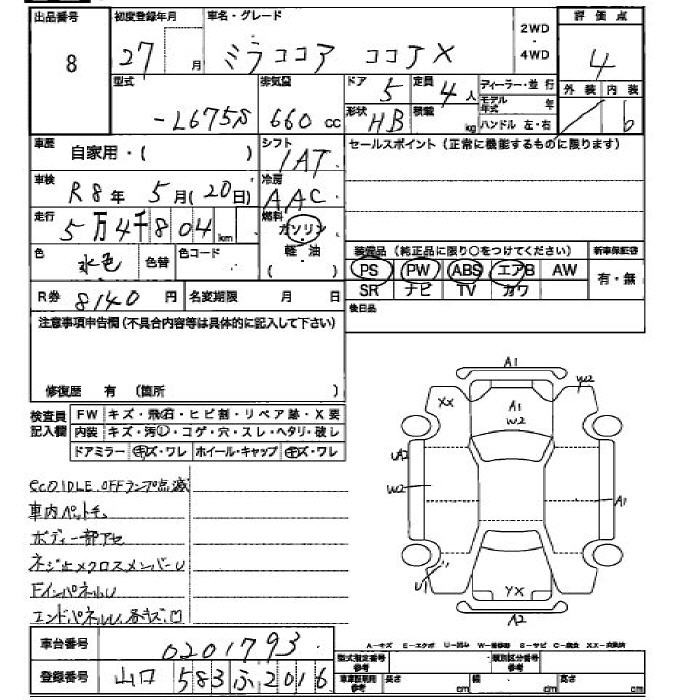 出品番号 初度登録年月 車名・グレード 2WD・4WD 評価点
8 27 月 ミラココア ココアX 4
型式 排気量 ドア 5 定員 4 人 ディーラー・並行 外装 内装
-L675S 660 cc 形状 HB 積載 kg モデル年式 年 ハンドル 左・右 6
車歴 自家用・( ) シフト 1AT セールスポイント(正常に機能するものに限ります)
車検 R8年 5月(20日) 冷房 AAC
走行 5万4千804 km 燃料 ガソリン
色 水色 色替 色コード 軽油 ( )
装備品(純正品に限り○をつけてください) 新車保証書
PS PW ABS エアB AW 有・無
SR ナビ TV カワ
R券 8140 円 名変期限 月 日 後日品
注意事項申告欄(不具合内容等は具体的に記入して下さい)
修復歴 有 (箇所 )
検査員記入欄 FW キズ・飛石・ヒビ割・リペア跡・X要
内装 キズ・汚し・コゲ・穴・スレ・ヘタリ・破レ
ドアミラー キズ・ワレ ホイール・キャップ キズ・ワレ
ecoIDLE.OFFランプ点滅
車内ペットチ
ボディ一部アセ
ネジ止メクロスメンバーU
FインパネルU
エンドパネルU、各キズ凹
A1
XX A1 W2
W2
UA2
W2
A1
U1
YX
A2
A-キズ E-エクボ U-凹み W-補修跡 S-サビ C-腐食 XX-交換済
車台番号 0201793
登録番号 山口 583 ふ 2016
型式指定番号 参考 類別区分番号 参考
車庫証明用 参考 長さ cm 幅 cm 高さ cm